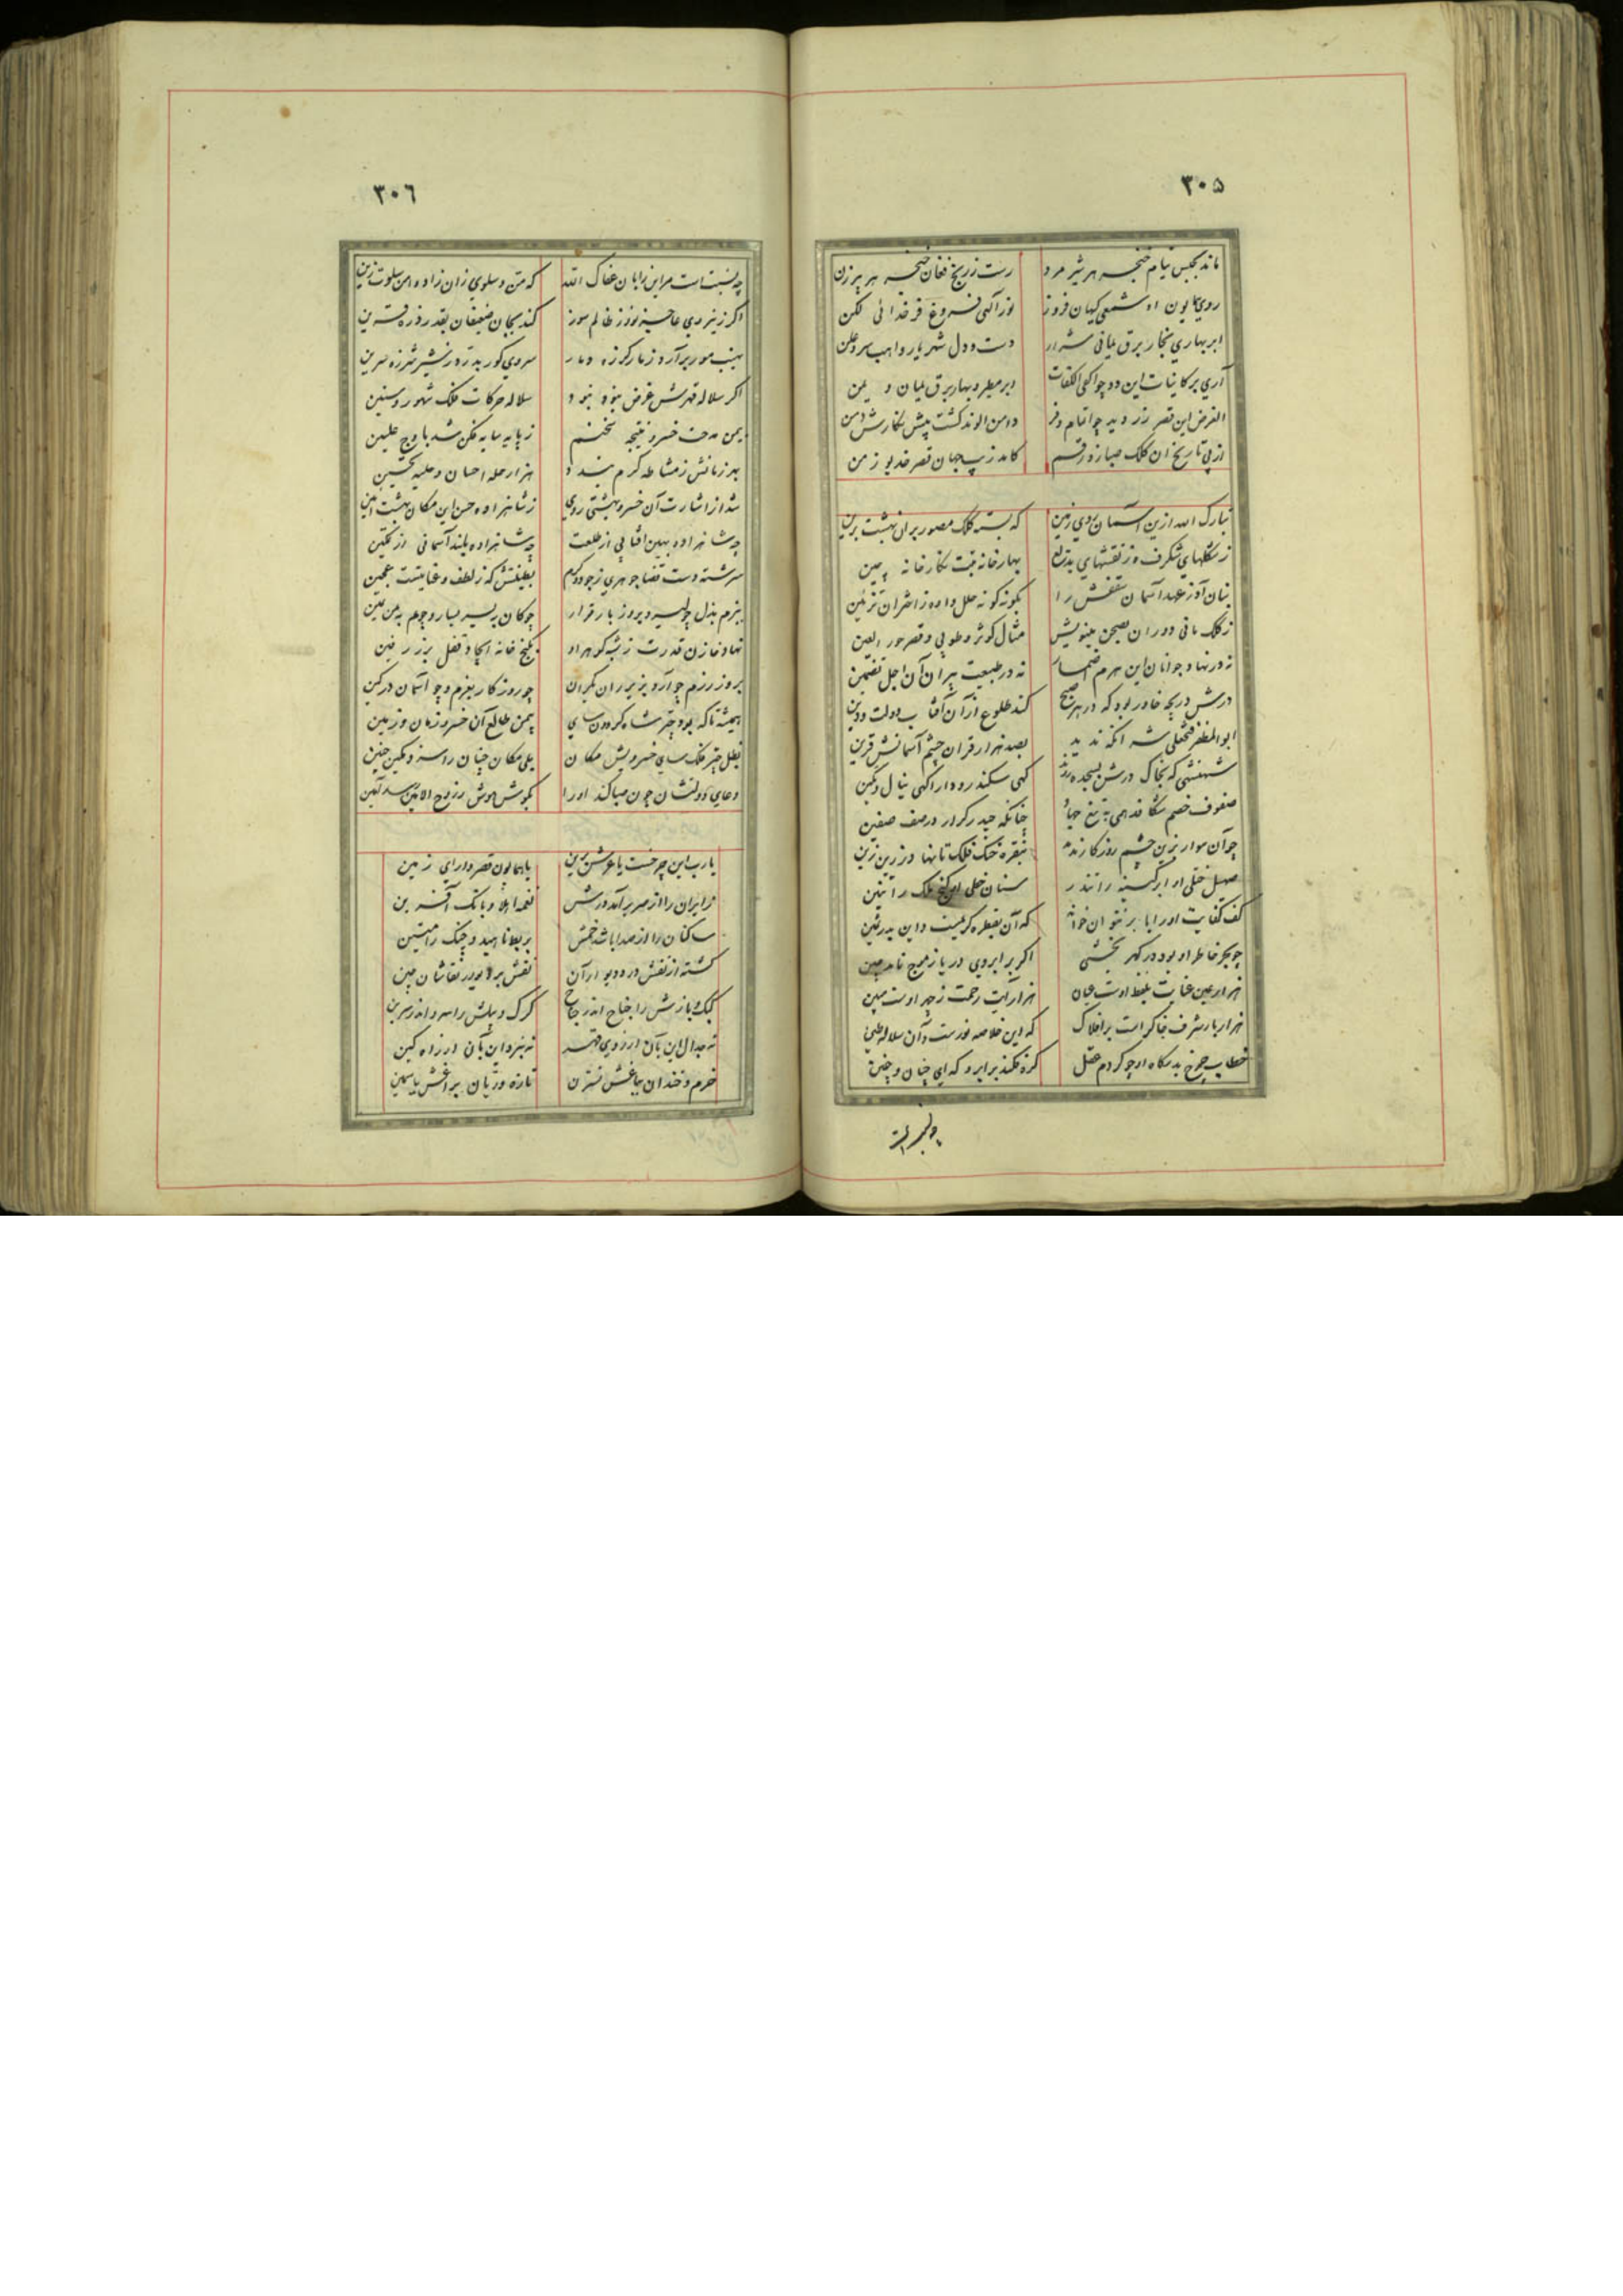 ۳۰۵
ماند بحبس نیام خنجر هر شیر مرد رست ز رنج فغان حنجر هر پیرزن
روی همایون او شمعی کیهان فروز نور آگهی فروغ فر خدائی لکن
ابر بهاری بخار برق یمانی شرار دست و دل شهریار واهب سر و علن
آری بر کاینات این دو چو آکفی الکفات ابر مطر و بهار برق یمان و یمن
الغرض این قصر زر دید چو اتمام و فر دامن الوند گشت پیش نگارش دمن
از پی تاریخ آن کلک صبا زد رقم کامد زیب جهان قصر خدیو زمن
تبارک الله ازین آسمان روی زمین که بسته کلک مصور بر آن بهشت برین
ز شکلهای شگرف و ز نقشهای بدیع بهار خانه تبت نگار خانه چین
بنان آذر عهد آسمان سقفش را بگونه گونه حلل داده ز اختران تزئین
ز کلک مانی دوران بصحن مینویش مثال کوثر و طوبی و قصر حور العین
نه در نهاد جوانان این هرم اضمار نه در طبیعت پیران آن اجل تضمین
درش دریچه خاور بود که در هر صبح کند طلوع از آن آفتاب دولت و دین
ابوالمظفر فتحعلی شه آنکه ندید بصد هزار قران چشم آسمانش قرین
شهنشهی که بخاک درش بسجده روند گهی سکندر و دارا گهی ینال و تکین
صفوف خصم شکافد همی به تیغ چنانکه حیدر کرار در صف صفین
چو آن سوار برین چشم روزگار ندید بنقره خنک فلک تا نهاد زرین زین
صهیل ختلی او ابر کینه را تندر سنان خطی او گنج ملک را تنین
کف کفایت او را با بر نتوان خواند که آن بقطره کریمست و این بدر ثمین
چو بحر خاطر او بود در گهر بخشی اگر بر ابروی دریا ز موج نامد چین
هزار عین عنایت بلفظ اوست عیان هزار آیت رحمت ز چهر اوست مبین
هزار بار شرف خاک راست بر افلاک که این خلاصه نورست و آن سلاله طین
خطاب چرخ بدرگاه او چو کردم عقل گره فکند بر ابرو که ای چنان و چنین
چه نسبت است
۳۰۶
چه نسبت است مر این را بآن عفاک الله که من و سلوی زان زاده و من سلوت ازین
اگر ز نیروی عاجز نواز ظالم سوز کند بجان ضعیفان بقدر ذره قرین
به نیش مور برآرد ز مار گرزه دمار به سروی گور بدرد ز شیر شرزه سرین
اگر سلاله قهرش غرض نبود نبود سلاله حرکات فلک شهور و سنین
بیمن مدحت خسرو نتیجه سخنم ز پایه سایه فکن شد باوج علیین
بهر زمانش ز مشاطه کرم بندد هزار حله احسان و حلیه تحسین
شد از اشارت آن خسرو بهشتی روی ز شاهزاده حسن این مکان بهشت آیین
چه شاهزاده بهین آفتابی از طلعت چه شاهزاده بلند آسمانی از تمکین
سرشته دست قضا جوهری ز جود و کرم بطینتش که ز لطف و عنایتست عجین
ببزم بذل چو گیرد بروز بار قرار چو کان بسر یسار و چو یم به من یمین
نهاد خازن قدرت ز شبه گوهر او بگنج خانه ایجاد قفل بر زرفین
بروز رزم چو آرد بزیر ران یکران چو روزگار بعزم و چو آسمان در کین
همیشه تا که بود چتر شاه گردون سای بیمن طالع آن خسرو زمان و زمین
بظل چتر فلک سای خسرویش مکان بلی مکان چنان راسزد مکین چنین
دعای دولتشان چون صبا کند او را بگوش هوش ز روح الامین رسد آمین
یا رب این چرخست یا عرش برین یا همایون قصر دارای زمین
نغمه اهلا و بانک آفرین
ساکنان را از صدا باشد خمش بربط ناهید و چنگ رامتین
گشته از نقش در و دیوار آن نقش بر دیوار نقاشان چین
کبک و بازش را جناح اندر جناح گرگ و میش را سر اندر سرین
نه جدال این بآن از روی قهر نه نبرد آن باین از راه کین
خرم و خندان بباغش نسترن تازه و ریان براغش یاسمین